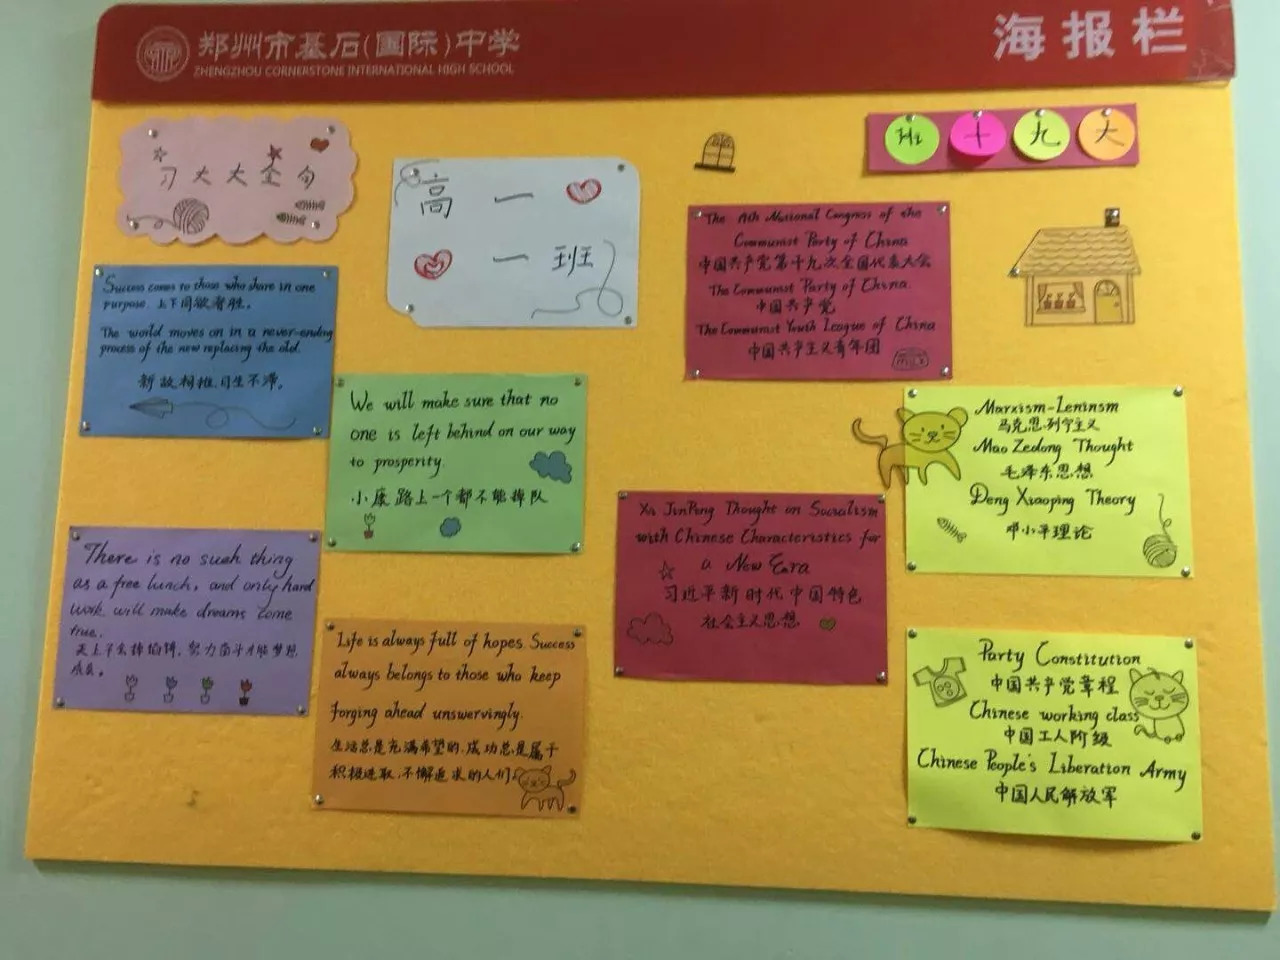 郑州市基石(国际)中学
ZHENGZHOU CORNERSTONE INTERNATIONAL HIGH SCHOOL
海报栏
习大大金句
高一
一班
Hi 十九大
Success comes to those who share in one
purpose. 上下同欲者胜。
The world moves on in a never-ending
process of the new replacing the old.
新故相推,日生不滞。
We will make sure that no
one is left behind on our way
to prosperity.
小康路上一个都不能掉队
There is no such thing
as a free lunch, and only hard
work will make dreams come
true.
天上不会掉馅饼,努力奋斗才能梦想
成真。
Life is always full of hopes. Success
always belongs to those who keep
forging ahead unswervingly.
生活总是充满希望的,成功总是属于
积极进取,不懈追求的人们
The National Congress of the
Communist Party of China
中国共产党第十九次全国代表大会
The Communist Party of China.
中国共产党
The Communist Youth League of China
中国共产主义青年团
Marxism-Leninsm
马克思列宁主义
Mao Zedong Thought
毛泽东思想
Deng Xiaoping Theory
邓小平理论
Xi JinPeng Thought on Socialism
with Chinese Characteristics for
a New Eara
习近平新时代中国特色
社会主义思想
Party Constitution
中国共产党章程
Chinese working class
中国工人阶级
Chinese People's Liberation Army
中国人民解放军